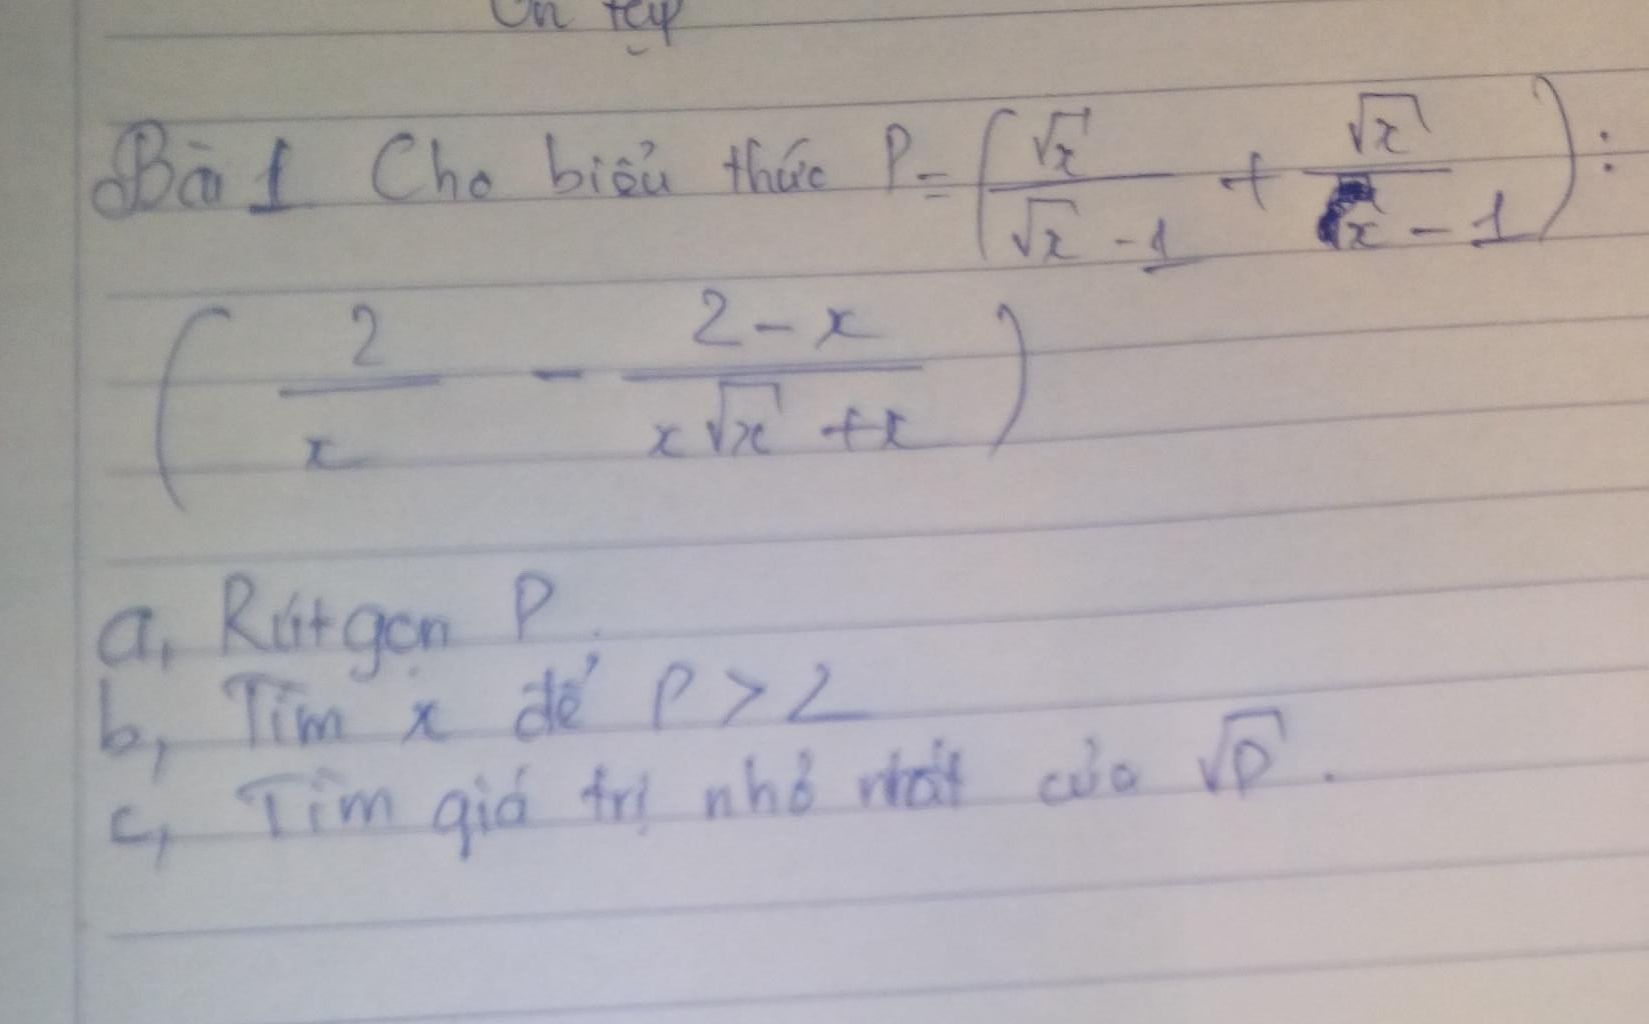 Ôn tập
Bài 1 Cho biểu thức P = (√x / (√x - 1) + √x / (x - 1)) :
(2 / x - (2 - x) / (x√x + x))
a, Rút gọn P.
b, Tìm x để P > 2
c, Tìm giá trị nhỏ nhất của √P.